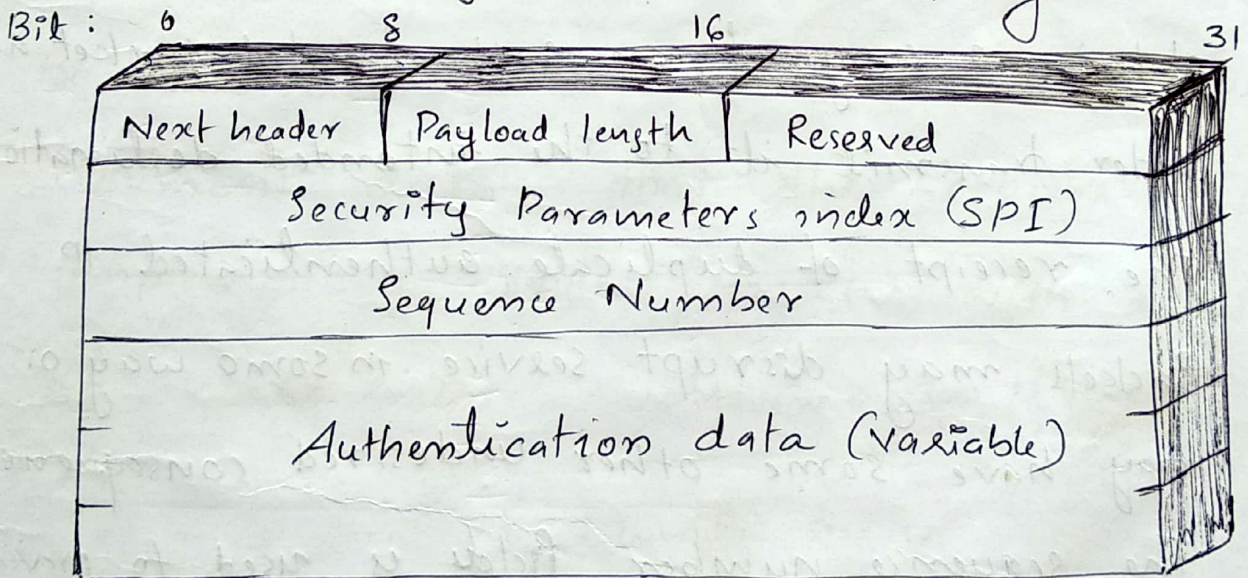 Bit : 0 8 16 31
Next header Payload length Reserved
Security Parameters index (SPI)
Sequence Number
Authentication data (variable)